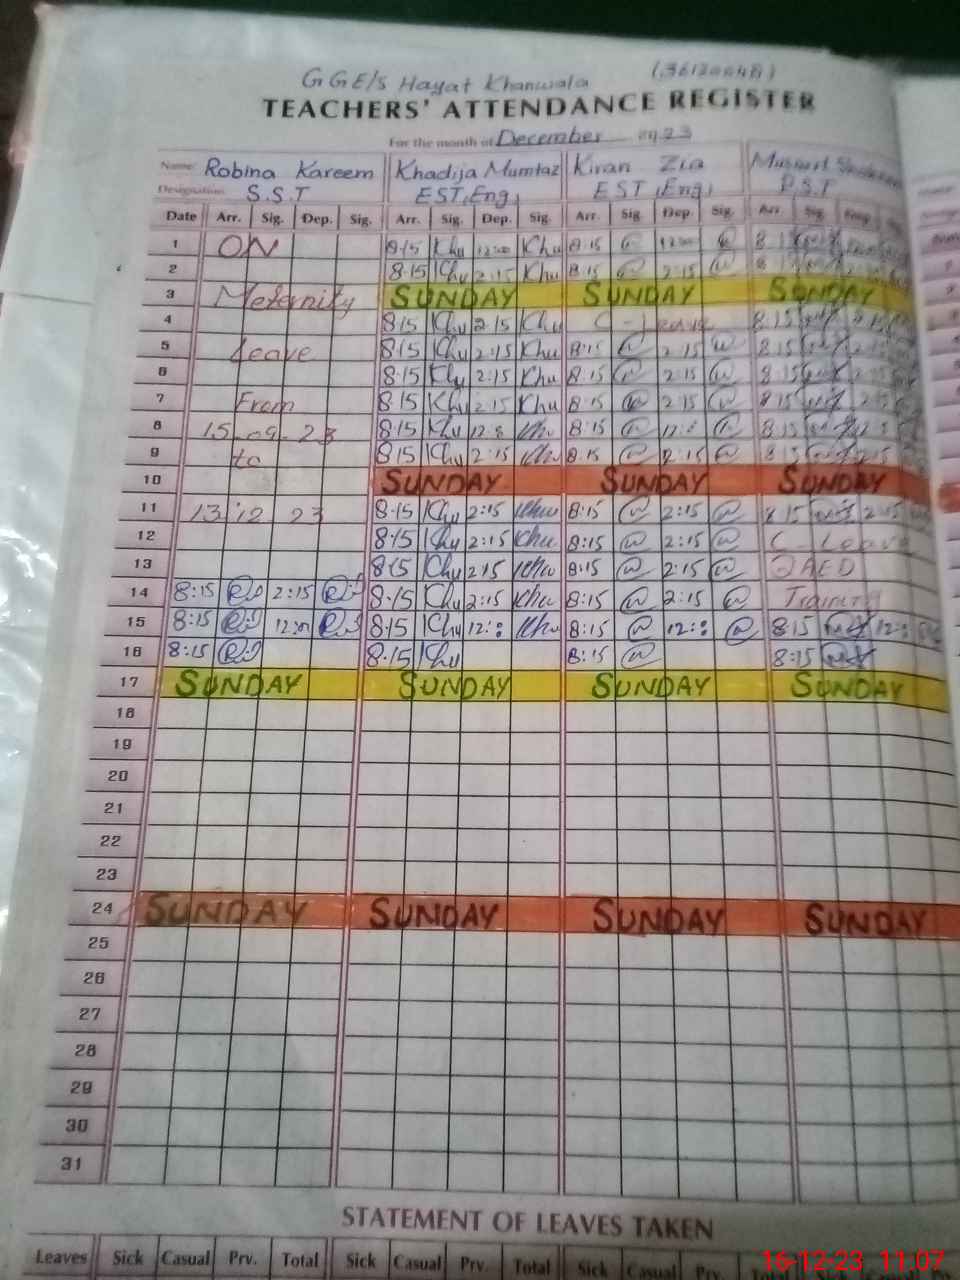 GGE/S Hayat Khanwala (36130048)
TEACHERS' ATTENDANCE REGISTER
For the month of December 23
Name: Robina Kareem Khadija Mumtaz Kiran Zia
Designation S.S.T EST,Eng, EST (Eng) P.S.T
Date Arr. Sig. Dep. Sig. Arr. Sig. Dep. Sig. Arr. Sig. Dep. Sig. Arr. Sig.
1 ON 8:15 Khu 12:00 Khu 8:15 12:00 8:1
2 8:15 Khu 2:15 Khu 8:15 2:15 8:1
3 Meternity SUNDAY SUNDAY SUNDAY
4 8:15 Khu 2:15 Khu C-leave 8:15
5 Leave 8:15 Khu 2:15 Khu 8:15 2:15 8:15
6 8:15 Khu 2:15 Khu 8:15 2:15 8:15
7 From 8:15 Khu 2:15 Khu 8:15 2:15 8:15
8 15-09-23 8:15 Khu 12: Khu 8:15 12: 8:15
9 to 8:15 Khu 2:15 Khu 8:15 2:15 8:15
10 SUNDAY SUNDAY SUNDAY
11 13 12 23 8:15 Khu 2:15 Khu 8:15 2:15 8:15 2:15
12 8:15 Khu 2:15 Khu 8:15 2:15 C-Leave
13 8:15 Khu 2:15 Khu 8:15 2:15 QAED
14 8:15 2:15 8:15 Khu 2:15 Khu 8:15 2:15 Training
15 8:15 12:00 8:15 Khu 12: Khu 8:15 12: 8:15 12:
16 8:15 8:15 Khu 8:15 8:15
17 SUNDAY SUNDAY SUNDAY SUNDAY
18
19
20
21
22
23
24 SUNDAY SUNDAY SUNDAY SUNDAY
25
26
27
28
29
30
31
STATEMENT OF LEAVES TAKEN
Leaves Sick Casual Prv. Total Sick Casual Prv. Total Sick Casual Prv.
16-12-23 11:07